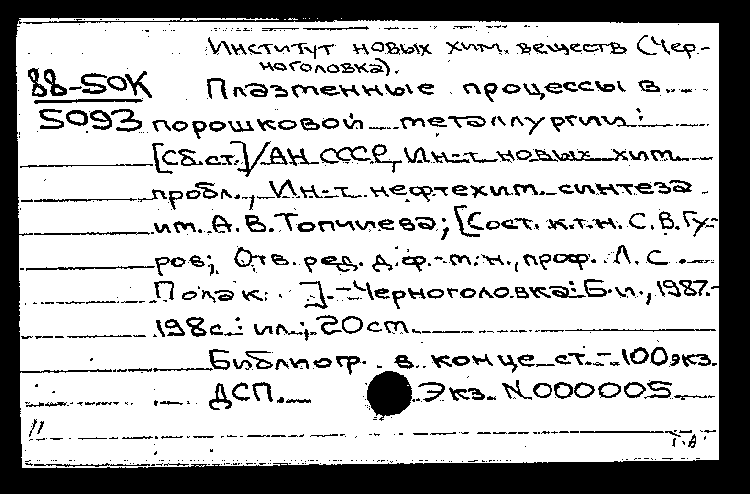 Институт новых хим. веществ (Чер-
ноголовка).
88-50К Плазменные процессы в
5093 порошковой металлургии:
[Сб.ст.]/АН СССР, Ин-т новых хим.
пробл., Ин-т нефтехим. синтеза
им. А.В.Топчиева; [Сост. к.т.н. С.В.Гу-
ров; Отв. ред. д.ф.-м.н., проф. Л.С.
Полак. ].-Черноголовка:Б.и.,1987.-
198с.:ил.; 20cm.
Библиогр. в конце ст.-100экз.
ДСП. Экз. N.000005
11
Г.А.